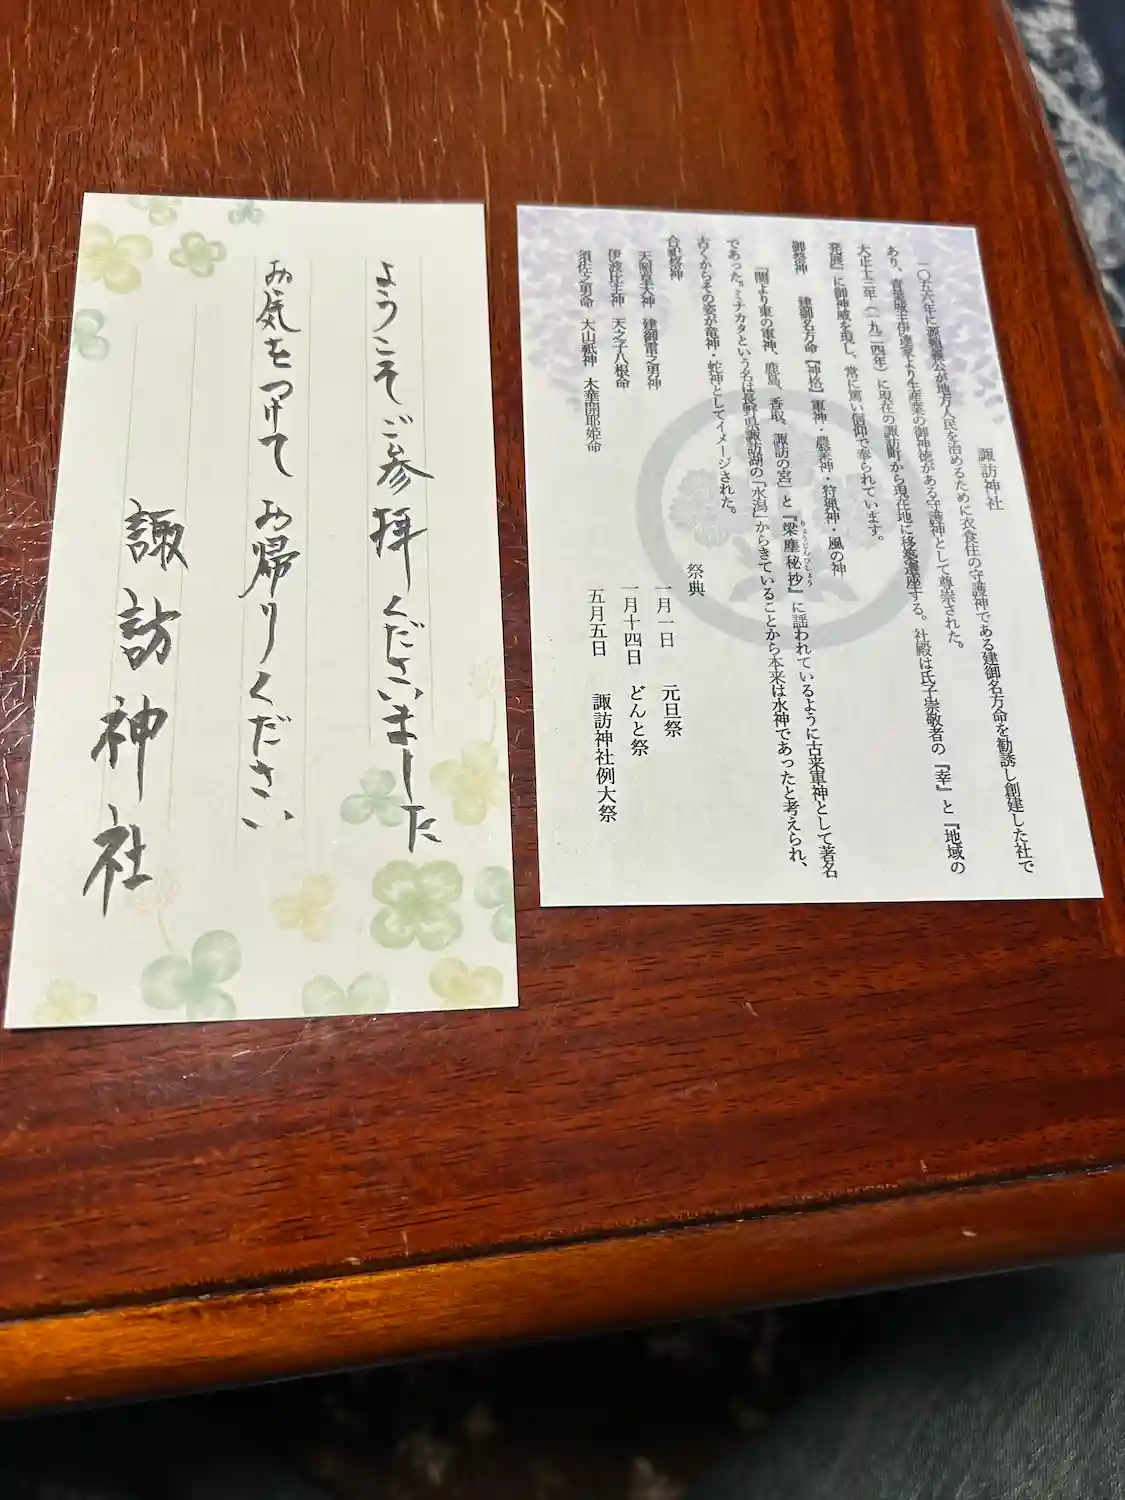 ようこそご参拝くださいました
お気をつけてお帰りください
諏訪神社
諏訪神社
一〇五六年に源頼義公が地方人民を治めるために衣食住の守護神である建御名方命を勧誘し創建した社で
あり、青葉城主伊達家より生産業の御神徳がある守護神として尊崇された。
大正十三年(一九二四年)に現在の諏訪町から現在地に移築遷座する。社殿は氏子崇敬者の『幸』と『地域の
発展』に御神威を現し、常に篤い信仰で奉られています。
御祭神 建御名方命【神格】軍神・農業神・狩猟神・風の神
「関より東の軍神、鹿島、香取、諏訪の宮」と『梁塵秘抄』に謡われているように古来軍神として著名
りょうじんひしょう
であった。ミナカタという名は長野県諏訪湖の「水潟」からきていることから本来は水神であったと考えられ、
古くからその姿が竜神・蛇神としてイメージされた。
合祀祭神
天照皇大神 建御雷之勇神
伊波比主神 天之子八根命
須佐之男命 大山祇神 木華開耶姫命
祭典
一月一日 元旦祭
一月十四日 どんと祭
五月五日 諏訪神社例大祭